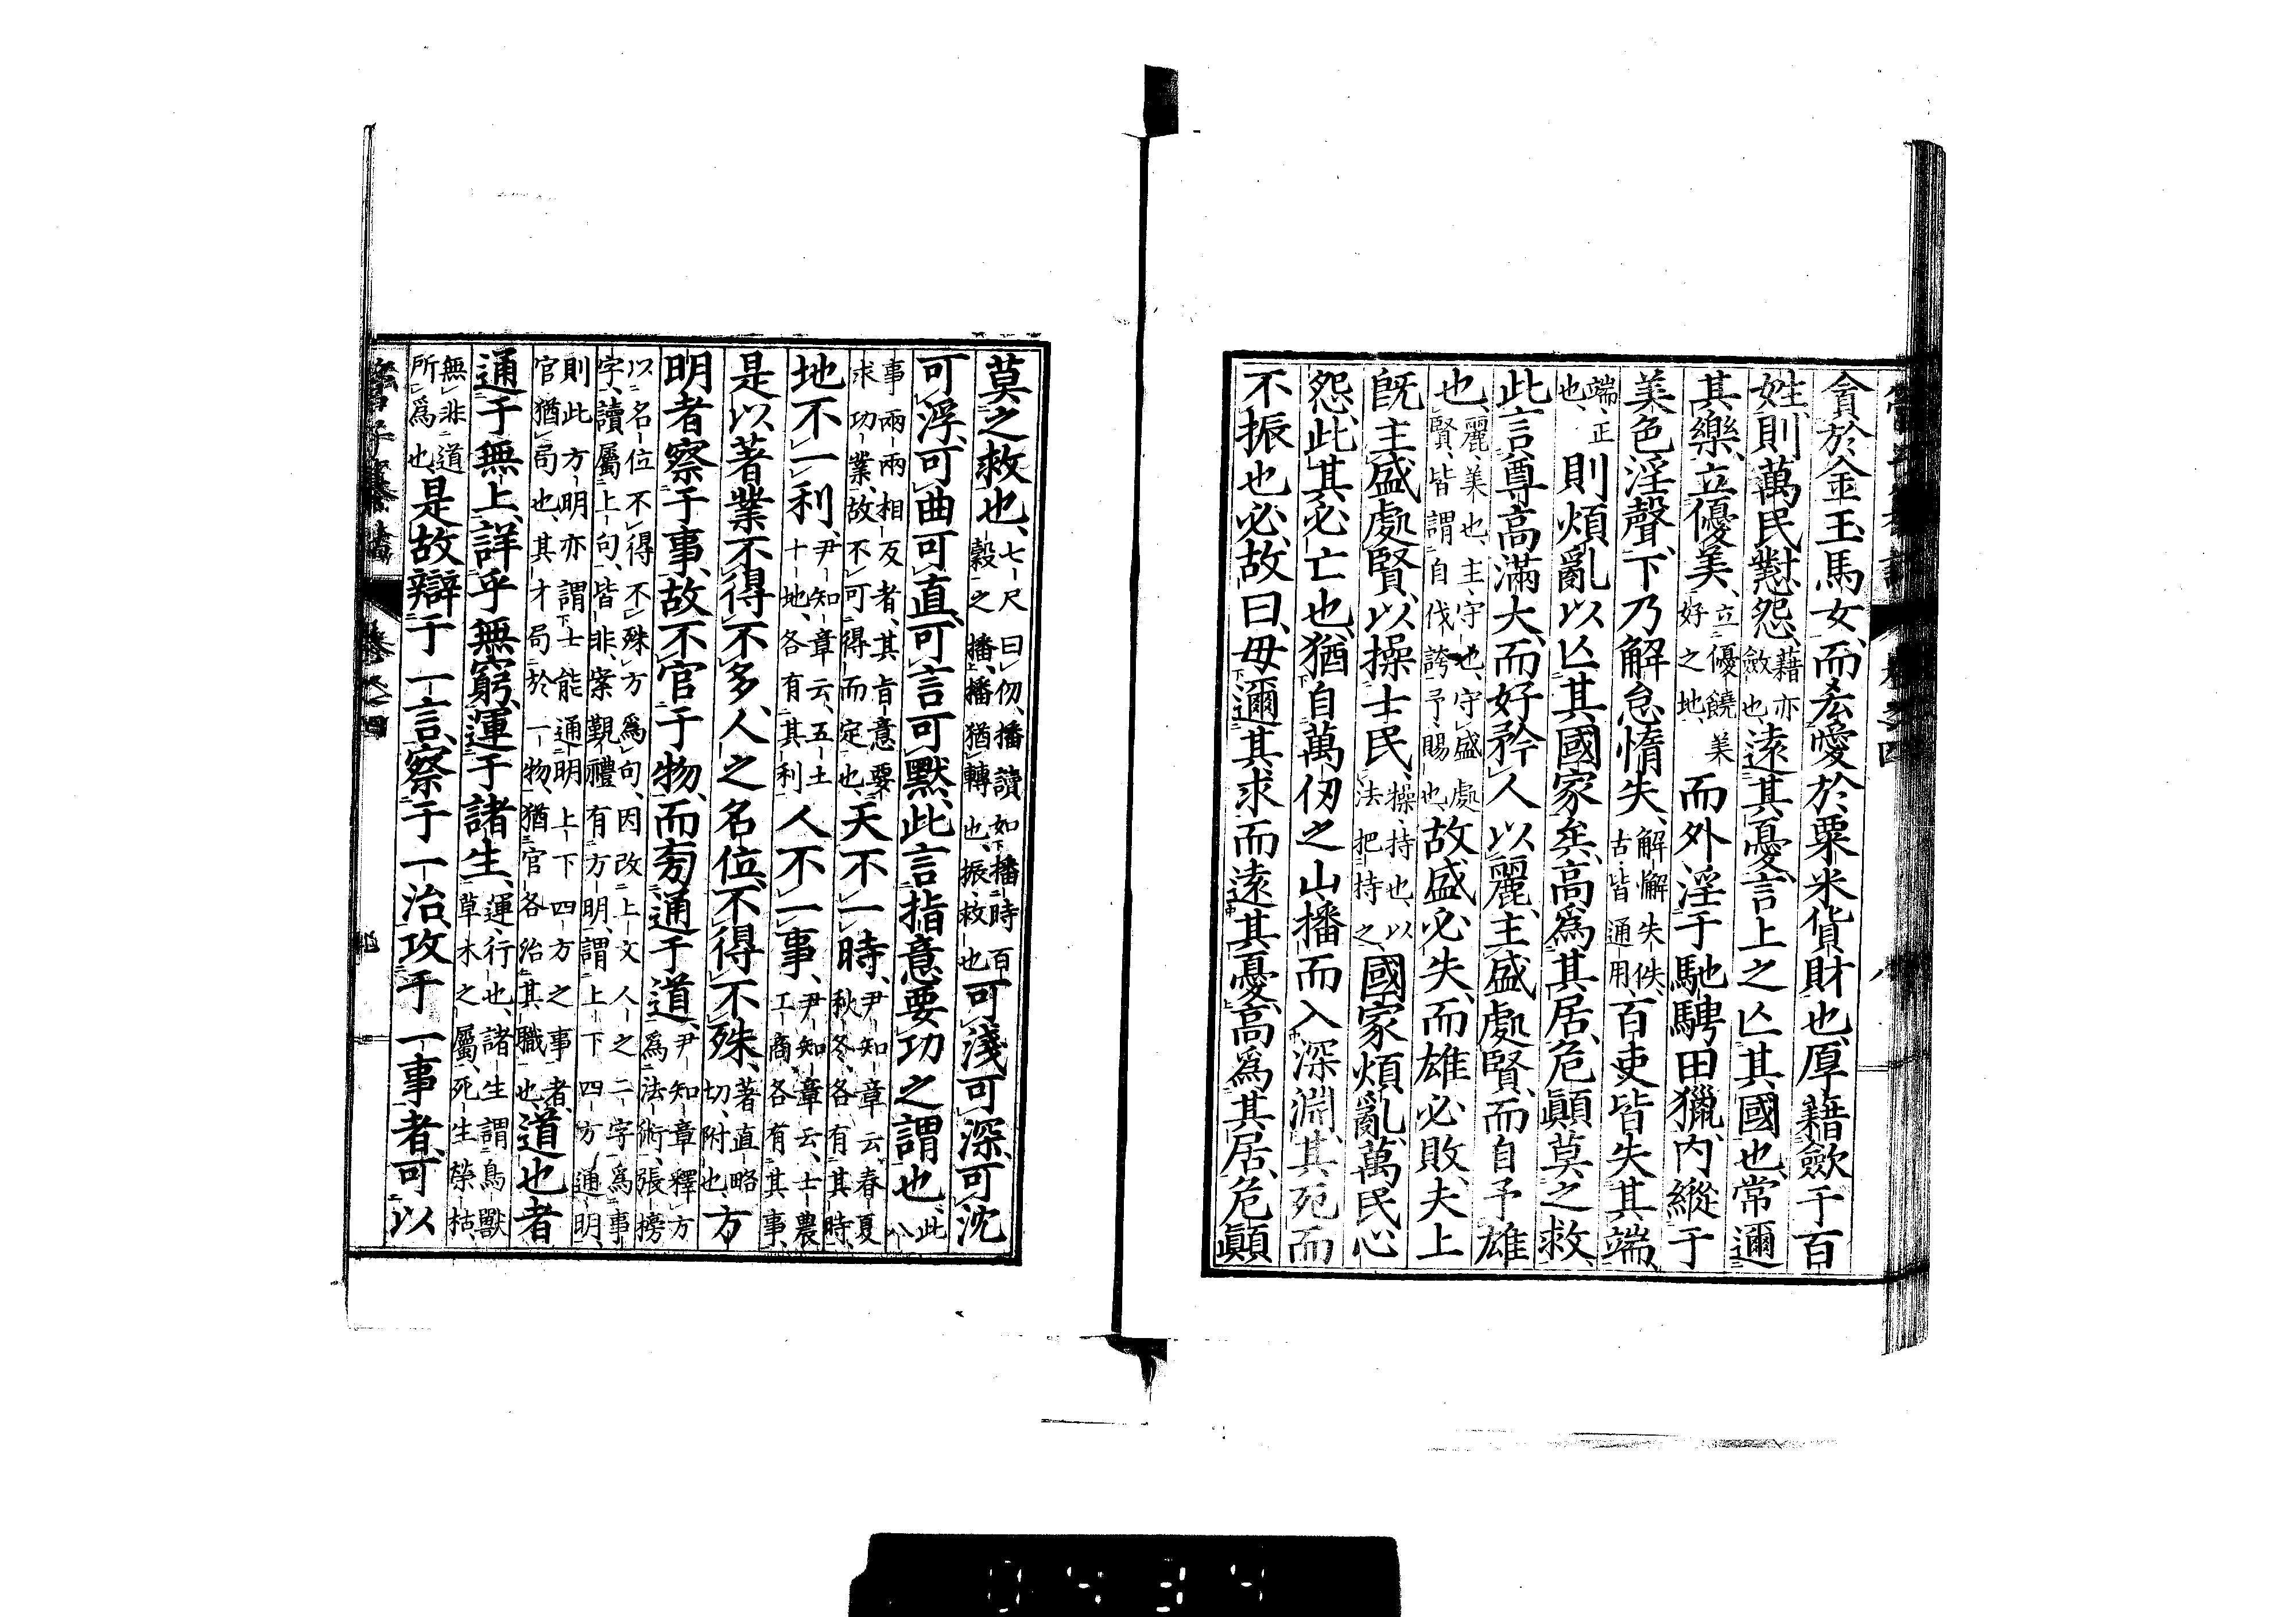 管子纂詁 卷之四 八
貪於金玉馬女、而吝愛於粟米貨財也、厚藉歛于百
姓、則萬民懟怨、藉亦歛也、遠其憂、言上之亾其國也、常邇
其樂、立優美、立優饒美好之地、而外淫于馳騁田獵、內縱于
美色淫聲、下乃解怠惰失、解懈失佚、古皆通用、百吏皆失其端、
端、正也、則煩亂以亾其國家矣、高爲其居、危顚莫之救、
此言尊高滿大、而好矜人以麗、主盛處賢、而自予雄
也、麗、美也、主、守也、守盛處賢、皆謂自伐誇、予、賜也、故盛必失、而雄必敗、夫上
旣主盛處賢、以操士民、操、持也、以法把持之、國家煩亂、萬民心
怨、此其必亡也、猶自萬仞之山、播而入深淵、其死而
不振也必、故曰、毋邇其求、而遠其憂、高爲其居、危顚
莫之救也、七尺曰仞、播讀如播時百穀之播、播猶轉也、振、救也、可淺可深、可沈
可浮、可曲可直、可言可默、此言指意要功之謂也、此八
事兩兩相反者、其旨意要求功業、故不可得而定也、天不一時、尹知章云、春夏秋冬、各有其時、
地不一利、尹知章云、五土十地、各有其利、人不一事、尹知章云、士農工商、各有其事、
是以著業不得不多、人之名位、不得不殊、著直略切、附也、方
明者察于事、故不官于物、而旁通于道、尹知章釋方爲法術、張榜
以名位不得不殊方爲句、因改上文人之二字爲事字、讀屬上句、皆非、案覲禮有方明、謂上下四方通明、
則此方明亦謂士能通明上下四方之事者、官猶局也、其才局於一物、猶官各治其職也、道也者
通于無上、詳乎無窮、運于諸生、運、行也、諸生謂鳥獸草木之屬、死生榮枯、
無非道所爲也、是故辯于一言、察于一治、攻于一事者、可以
管子纂詁 卷之四 九